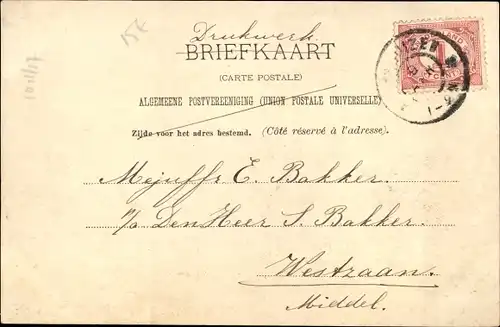 15E
Drukwerk.
BRIEFKAART
(CARTE POSTALE)
ALGEMEENE POSTVEREENIGING (UNION POSTALE UNIVERSELLE)
Zijde voor het adres bestemd. (Côté réservé à l'adresse).
1
CENT
Mejuffr E. Bakker.
p/a Den Heer S. Bakker.
Westzaan.
Middel.